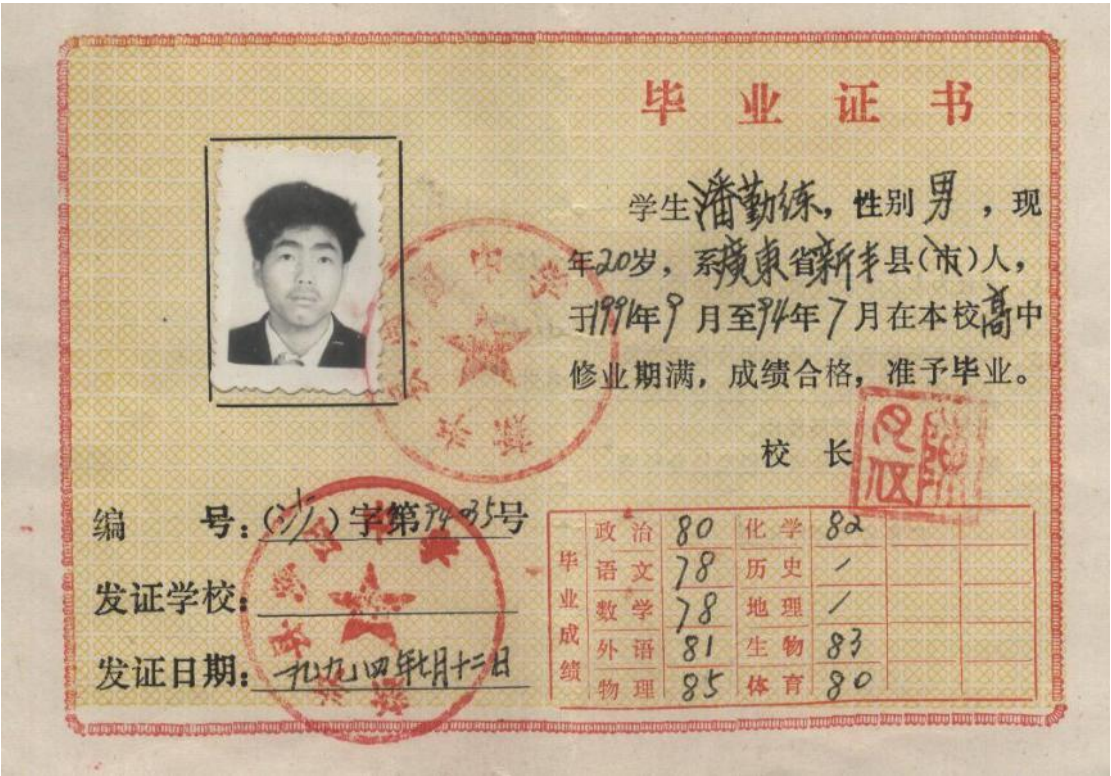 毕业证书
学生潘勤练，性别男，现
年20岁，系廣東省新丰县(市)人，
于1991年9月至94年7月在本校高中
修业期满，成绩合格，准予毕业。
校长
编号：( )字第94035号
发证学校：
发证日期：一九九四年七月十二日
毕业成绩
政治 80 化学 82
语文 78 历史 /
数学 78 地理 /
外语 81 生物 83
物理 85 体育 80